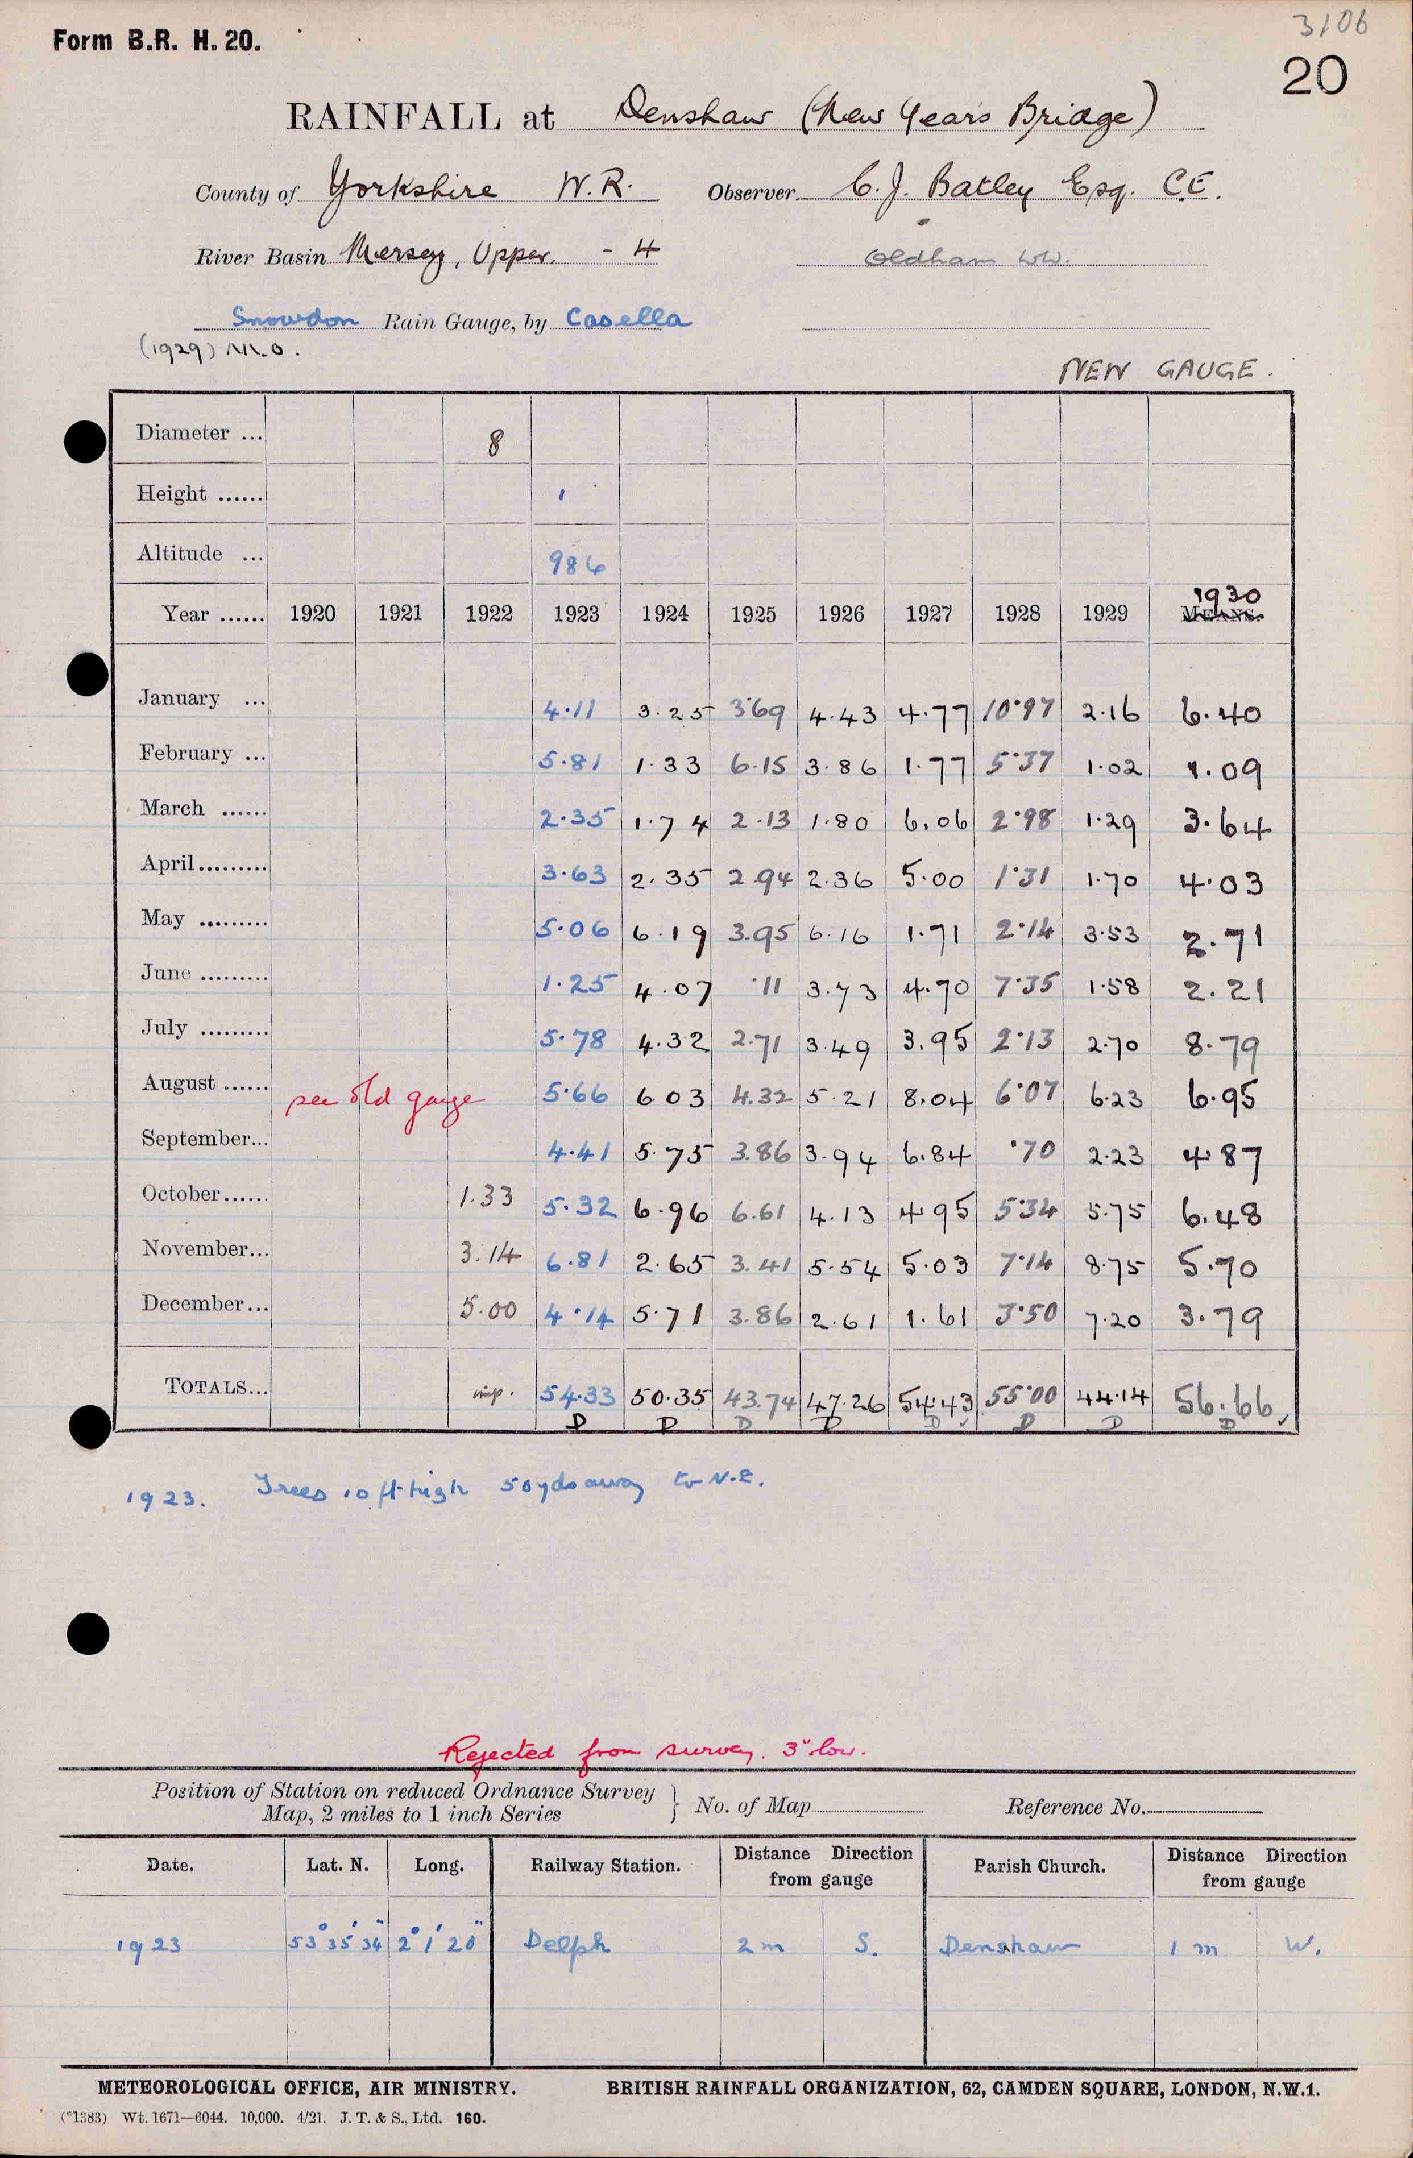 3106
Form B.R. H. 20.
20
RAINFALL at Denshaw (New Years Bridge)
County of Yorkshire W.R. Observer C. J. Batley Esq. C.E.
River Basin Mersey, Upper. - H Oldham WW.
Snowdon Rain Gauge, by Casella
(1929) M.O.
NEW GAUGE.
Diameter ... 8
Height ...... 1
Altitude ... 986
Year ...... 1920 1921 1922 1923 1924 1925 1926 1927 1928 1929 MEANS. 1930
January ... 4.11 3.25 3.69 4.43 4.77 10.97 2.16 6.40
February ... 5.81 1.33 6.15 3.86 1.77 5.37 1.02 1.09
March ...... 2.35 1.74 2.13 1.80 6.06 2.98 1.29 3.64
April ......... 3.63 2.35 2.94 2.36 5.00 1.31 1.70 4.03
May ......... 5.06 6.19 3.95 6.16 1.71 2.14 3.53 2.71
June ......... 1.25 4.07 .11 3.73 4.70 7.35 1.58 2.21
July ......... 5.78 4.32 2.71 3.49 3.95 2.13 2.70 8.79
August ...... see old gauge 5.66 6 03 4.32 5.21 8.04 6.07 6.23 6.95
September... 4.41 5.75 3.86 3.94 6.84 .70 2.23 4.87
October...... 1.33 5.32 6.96 6.61 4.13 4.95 5.34 5.75 6.48
November... 3.14 6.81 2.65 3.41 5.54 5.03 7.14 8.75 5.70
December... 5.00 4.14 5.71 3.86 2.61 1.61 3.50 7.20 3.79
TOTALS... imp. 54.33 50.35 43.74 47.26 54.43 55.00 44.14 56.66
D D D D D D D D
1923. Trees 10 ft high 50 yds away to N.E.
Rejected from survey. 3" low.
Position of Station on reduced Ordnance Survey Map, 2 miles to 1 inch Series } No. of Map Reference No.
Date. Lat. N. Long. Railway Station. Distance Direction from gauge Parish Church. Distance Direction from gauge
1923 53° 35' 34" 2° 1' 20" Delph 2 m S. Denshaw 1 m W.
METEOROLOGICAL OFFICE, AIR MINISTRY. BRITISH RAINFALL ORGANIZATION, 62, CAMDEN SQUARE, LONDON, N.W.1.
(*1383) Wt. 1671—6044. 10,000. 4/21. J. T. & S., Ltd. 160.